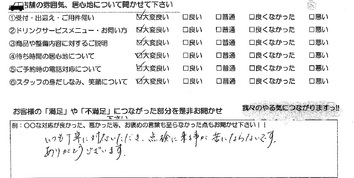 店舗の雰囲気、居心地について聞かせて下さい
①受付・出迎え・ご用件伺 ☑大変良い □良い □普通 □良くなかった □悪い
②ドリンクサービスメニュー・お伺い方 ☑大変良い □良い □普通 □良くなかった □悪い
③商品や整備内容に対するご説明 ☑大変良い □良い □普通 □良くなかった □悪い
④待ち時間の居心地について ☑大変良い □良い □普通 □良くなかった □悪い
⑤ご予約時の電話対応について ☑大変良い □良い □普通 □良くなかった □悪い
⑥スタッフの身だしなみ、笑顔について ☑大変良い □良い □普通 □良くなかった □悪い
お客様の「満足」や「不満足」につながった部分を是非お聞かせ下さい 我々のやる気につながりますっ!!
例:○○な対応が良かった、悪かった等、お褒めの言葉も至らなかった点もお聞かせ下さい!!
いつも丁寧に対応いただき、点検に来る事が苦にならないです。
ありがとうございます。